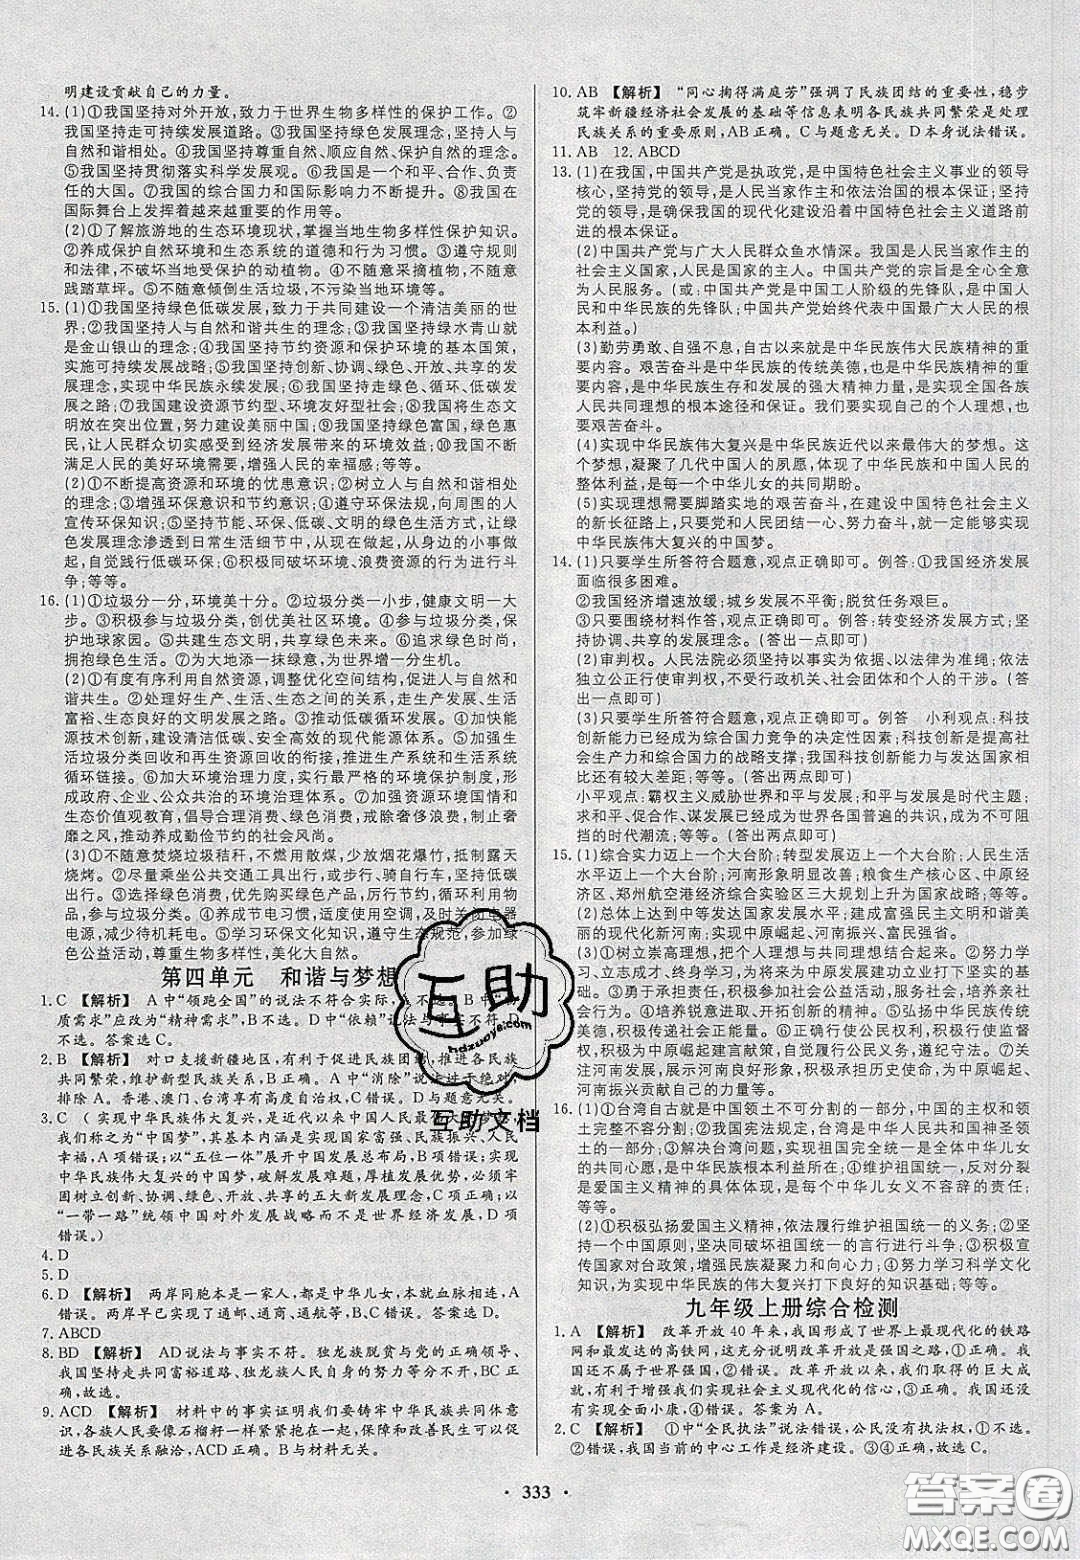 明建设贡献自己的力量。
14. (1)①我国坚持对外开放，致力于世界生物多样性的保护工作。②
我国坚持走可持续发展道路。③我国坚持绿色发展理念，坚持人与
自然和谐相处。④我国坚持尊重自然、顺应自然、保护自然的理念。
⑤我国坚持贯彻落实科学发展观。⑥我国是一个和平、合作、负责
任的大国。⑦我国的综合国力和国际影响力不断提升。⑧我国在
国际舞台上发挥着越来越重要的作用等。
(2)①了解旅游地的生态环境现状，掌握当地生物多样性保护知识。
②养成保护自然环境和生态系统的道德和行为习惯。③遵守规则
和法律，不破坏当地受保护的动植物。④不随意采摘植物，不随意
踐踏草坪。⑤不随意倾倒生活垃圾，不污染当地环境等。
15. (1)①我国坚持绿色低碳发展，致力于共同建设一个清洁美丽的世
界；②我国坚持人与自然和谐共生的理念；③我国坚持绿水青山就
是金山银山的理念；④我国坚持节约资源和保护环境的基本国策，
施可持续发展战略；⑤我国坚持创新、协调、绿色、开放、共享的发
展理念，实现中华民族永续发展；⑥我国坚持走绿色、循环、低碳发
展之路；⑦我国建设资源节约型、环境友好型社会；⑧我国将生态文
明放在突出位置，努力建设美丽中国；⑨我国坚持绿色富国，绿色惠
民，让人民群众切实感受到经济发展带来的环境效益；⑩我国不断
满足人民的美好环境需要，增强人民的幸福感；等等。
(2)①不断提高资源和环境的忧患意识；②树立人与自然和谐共处
的理念；③增强环保意识和节约意识；④遵守环保法规，向周围的人
宣传环保知识；⑤坚持节能、环保、低碳、文明的绿色生活方式，让绿
色发展理念渗透到日常生活细节中，从我做起，从身边的小事做起，
自觉绿色低碳环保；⑥积极同破坏环境、浪费资源的行为进行斗
争；等等。
16. (1)①垃圾分一分，环境美十分。②垃圾分类一小步，健康文明一大
步。③积极参与垃圾分类，创优美社区环境。④积极参与垃圾分类，保
护地球家园。⑤共建生态文明，共创绿色未来。⑥追求绿色时尚，
拥抱绿色生活。⑦为大地添一抹绿意，为世界增一分生机。
(2)①有度有序利用自然资源，调整优化空间结构，促进人与自然和
谐共生。②处理好生产、生活、生态之间的关系，走生产发展、生活
富裕、生态良好的文明发展之路。③推动低碳循环发展。④加快能
源技术创新，建设清洁低碳、安全高效的现代能源体系。⑤加强生
活垃圾分类回收和再生资源回收的衔接，推进生产系统和生活系统
循环链接。⑥加大环境治理力度，实行最严格的环境保护制度，形成
政府、企业、公众共治的环境治理体系。⑦加强资源环境国情和生
态价值观教育，倡导合理消费，力戒奢侈浪费，制止奢
靡之风，推动养成勤俭节约的社会风尚。
(3)①不随意焚烧垃圾秸秆，不燃用散煤，少放烟花爆竹，抵制露天
烧烤。②尽量乘坐公共交通工具出行，或步行、骑自行车，坚持低碳
出行。③选择绿色消费，优先购买绿色产品，减少使用一次性日用
品，参与垃圾分类。④养成节电习惯，适度使用空调，及时关闭电器
电源，减少待机耗电。⑤学习环保文化知识，遵守生态规范，参与绿
色公益活动，尊重生物多样性，美化大自然。
第四单元　和谐与梦想
1. C 【解析】 A中“领跑全国”的说法不符合实际，A不选。B中“物
质需求”应改为“精神需求”，B不选。D中“依赖”说法与事实不符，D
不选。答案选C。
2. B 【解析】 对口支援新疆地区，有利于促进民族团结，推进各民族
共同繁荣，维护新型民族关系，B正确。A中“消除”说法过于绝对，
排除A。香港、澳门、台湾具有高度自治权，C错误。D与题意无关。
3. C （实现中华民族伟大复兴，是近代以来中国人民最伟大的梦想，
我们称之为“中国梦”，其基本内涵是实现国家富强、民族振兴、人民
幸福，A项错误；以“五位一体”展开中国发展总布局，B项错误；实现
中华民族伟大复兴的中国梦，破解发展难题，厚植发展优势，必须牢
固树立创新、协调、绿色、开放、共享的五大新发展理念，C项正确；以
“一带一路”统领中国对外发展战略而不是世界经济发展，D项
错误。）
4. D
5. D
6. D 【解析】 两岸同胞本是一家人，都是中华儿女，本就血脉相连，A
错误。两岸早已实现了通邮、通商、通航等，B、C错误。答案选D。
7. ABCD
8. BD 【解析】 AD说法与事实不符。独龙族脱贫与党的正确领导、
我国坚持走共同富裕道路、独龙族人民自身的努力等分不开，BC正
确，故选。
9. ACD 【解析】 材料中的事实证明我们要铸牢中华民族共同体意
识，各族人民要像石榴籽一样紧紧抱在一起，保障和改善民生可以
使各民族关系融洽，ACD正确。B与材料无关。
10. AB 【解析】 “同心掬得满庭芳”强调了民族团结的重要性，稳步
筑牢新疆经济社会发展的基础等信息表明各民族共同繁荣是处理
民族关系的重要原则，AB正确。C与题意无关。D本身说法错误。
11. AB　12. ABCD
13. (1)在我国，中国共产党是执政党，是中国特色社会主义事业的领导
核心，坚持党的领导，是人民当家作主和依法治国的根本保证；坚持
党的领导，是确保我国的现代化建设沿着中国特色社会主义道路前
进的根本保证。
(2)中国共产党与广大人民群众鱼水情深。我国是人民当家作主的
社会主义国家，人民是国家的主人。中国共产党的宗旨是全心全意
为人民服务。(或：中国共产党是中国工人阶级的先锋队，是中国人
民和中华民族的先锋队，中国共产党始终代表中国最广大人民的根
本利益。)
(3)勤劳勇敢、自强不息，自古以来就是中华民族伟大民族精神的重
要内容。艰苦奋斗是中华民族的传统美德，也是中华民族精神的重
要体现。艰苦奋斗是民族生存和发展的强大精神力量，是实现全国各
族人民共同理想的根本途径和保证。我们要实现自己的个人理想，也
要艰苦奋斗。
(4)实现中华民族伟大复兴是中华民族近代以来最伟大的梦想。这
个梦想，凝聚了几代中国人的夙愿，体现了中华民族和中国人民的
整体利益，是每一个中华儿女的共同期盼。
(5)实现理想需要脚踏实地的艰苦奋斗，在建设中国特色社会主义
的新长征路上，只要党和人民团结一心、努力奋斗，就一定能够实现
中华民族伟大复兴的中国梦。
14. (1)只要学生所答符合题意，观点正确即可。例答：①我国经济发展
面临很多困难。
②我国经济增速放缓；城乡发展不平衡；脱贫任务艰巨。
③只要围绕材料作答，观点正确即可。例答：转变经济发展方式；坚
持协调、共享的发展理念。(答出一点即可)
(2)审判权。人民法院必须坚持以事实为依据、以法律为准绳；坚持
独立公正行使审判权，不受行政机关、社会团体和个人的干涉。(答
出一点即可)
(3)只要学生所答符合题意，观点正确即可。例答　小利观点：科技
创新能力已经成为综合国力竞争的决定性因素；科技创新是提高社
会生产力和综合国力的战略支撑；我国科技创新能力与发达国家相
比有较大差距；等等。(答出两点即可)
小平观点：霸权主义威胁世界和平与发展；和平与发展是时代主题；
求和平、促合作、谋发展已成为世界各国普遍的共识，成为不可阻
挡的时代潮流；等等。(答出两点即可)
15. (1)综合实力迈上一个大台阶；转型发展迈上一个大台阶；人民生活
水平迈上一个大台阶；河南形象明显改善；粮食生产核心区、中原经
济区、郑州航空港经济综合实验区三大规划上升为国家战略；等等。
(2)总体上达到中等发达国家发展水平；建成富强民主文明和谐美
丽的现代化新河南；振兴河南、富民强省。
(3)①树立崇高理想，把个人理想与共同理想结合起来。②努力学
习，立志成才，不断提高科学文化素质，为将来为中原发展建功立业
奠定基础。③积极参加社会公益活动，服务社会，培养亲社会行
为。④培养锐意进取、开拓创新的精神。⑤弘扬中华民族传统
美德，积极传递社会正能量。⑥正确行使公民权利，积极行使监督
权，积极为中原发展建言献策，自觉履行公民义务，遵纪守法。⑦关
注河南发展，维护河南良好形象，积极承担历史使命，为中原崛起、
河南振兴贡献自己的力量；等等。
16. (1)①台湾自古以来就是中国领土不可分割的一部分，中国的主权和领土
完整不容分割；②我国疆域辽阔，台湾是中华人民共和国的神圣
领土的一部分；③解决台湾问题，实现祖国完全统一是全体中华儿女
的共同心愿，是中华民族根本利益所在；④维护祖国统一，反对分裂
是爱国主义精神的具体体现，是每个中华儿女义不容辞的责任；
等等。
(2)①积极弘扬爱国主义精神，依法履行维护祖国统一的义务；②坚
持一个中国原则，坚决同破坏祖国统一的言行进行斗争；③积极宣
传国家对台政策，增强民族凝聚力和向心力；④努力学习科学文化
知识，为实现中华民族的伟大复兴打下良好的知识基础；等等。
九年级上册综合检测
1. A 【解析】 改革开放40年来，我国形成了世界上最现代化的铁路
网和最发达的高铁网，这充分说明改革开放是强国之路，①正确。我
国还不属于世界强国，②错误。改革开放以来，我们取得的巨大成
就，有利于增强我们实现社会主义现代化的信心，③正确。我国还
没有实现全面小康，④错误。答案为A。
2. C 【解析】 ①中“全民执法”说法错误，公民没有执法权，①不选。
②错误，我国当前的中心工作是经济建设。③④正确，故选C。
· 333 ·
互助
hdzuoye.com
互助文档
答案圈
MXQE.COM